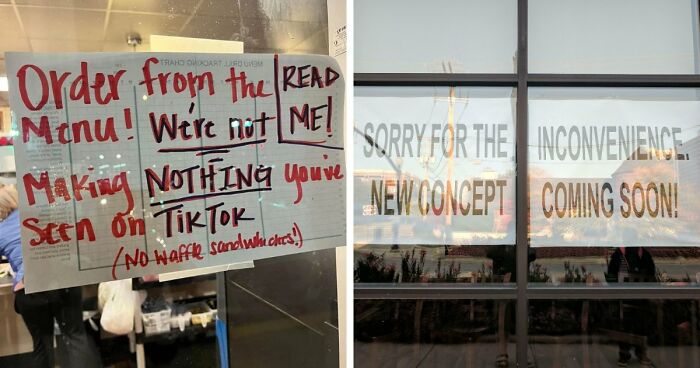 Order from the
Menu! We're not
READ
ME!
Making NOTHING you've
Seen on TikTok
(No waffle sandwhiches!)
SORRY FOR THE INCONVENIENCE.
NEW CONCEPT COMING SOON!